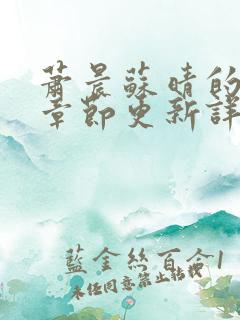 蕭晨蘇晴的
章節更新詳
藍金絲百合1
未经同意禁止转载